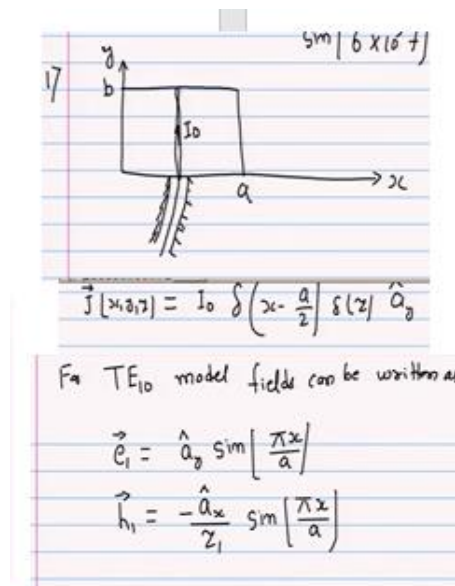 sin(6×10⁵t)
17
y
b
I0
a
x
J⃗(x,y,z) = I0 δ(x - a/2) δ(z) â_y
Fo TE10 model fields can be written a
e⃗1 = â_y sin[πx/a]
h⃗1 = -â_x/Z1 sin[πx/a]